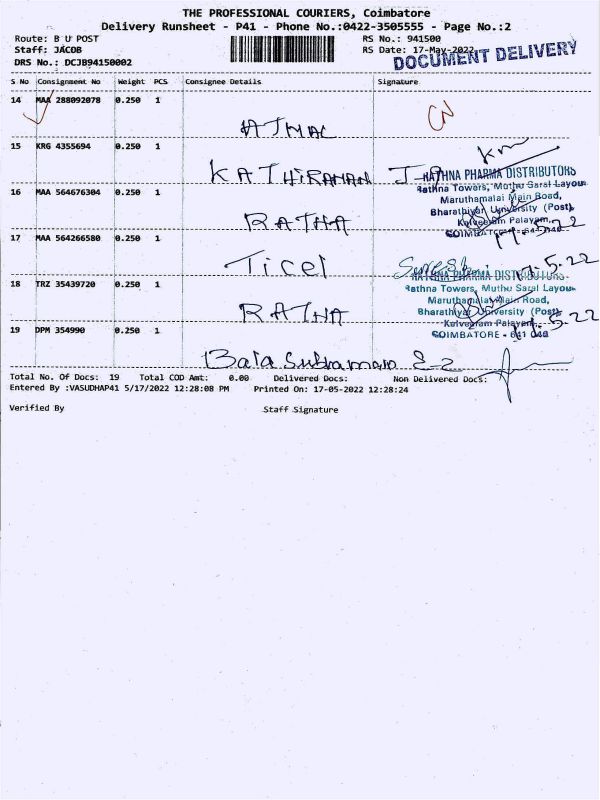 THE PROFESSIONAL COURIERS, Coimbatore
Delivery Runsheet - P41 - Phone No.:0422-3505555 - Page No.:2
Route: B U POST RS No.: 941500
Staff: JACOB RS Date: 17-May-2022
DRS No.: DCJB94150002
DOCUMENT DELIVERY
S No Consignment No Weight PCS Consignee Details Signature
14 MAA 288092078 0.250 1
15 KRG 4355694 0.250 1
KATHIRAMAN
RATHNA PHARMA DISTRIBUTORS
Rathna Towers, Muthu Saral Layout
Maruthamalai Main Road,
Bharathiyar University (Post)
Kalveeram Palayam,
16 MAA 564676304 0.250 1
RATHA
COIMBATORE - 641 046
17.5.22
17 MAA 564266580 0.250 1
Ticel
17.5.22
RATHNA PHARMA DISTRIBUTORS
18 TRZ 35439720 0.250 1
RATHA
Rathna Towers, Muthu Saral Layout
Maruthamalai Main Road,
Bharathiyar University (Post)
Kalveeram Palayam,
COIMBATORE - 641 046
19 DPM 354990 0.250 1
Bala Subramani
Total No. Of Docs: 19 Total COD Amt: 0.00 Delivered Docs: Non Delivered Docs:
Entered By :VASUDHAP41 5/17/2022 12:28:08 PM Printed On: 17-05-2022 12:28:24
Verified By Staff Signature